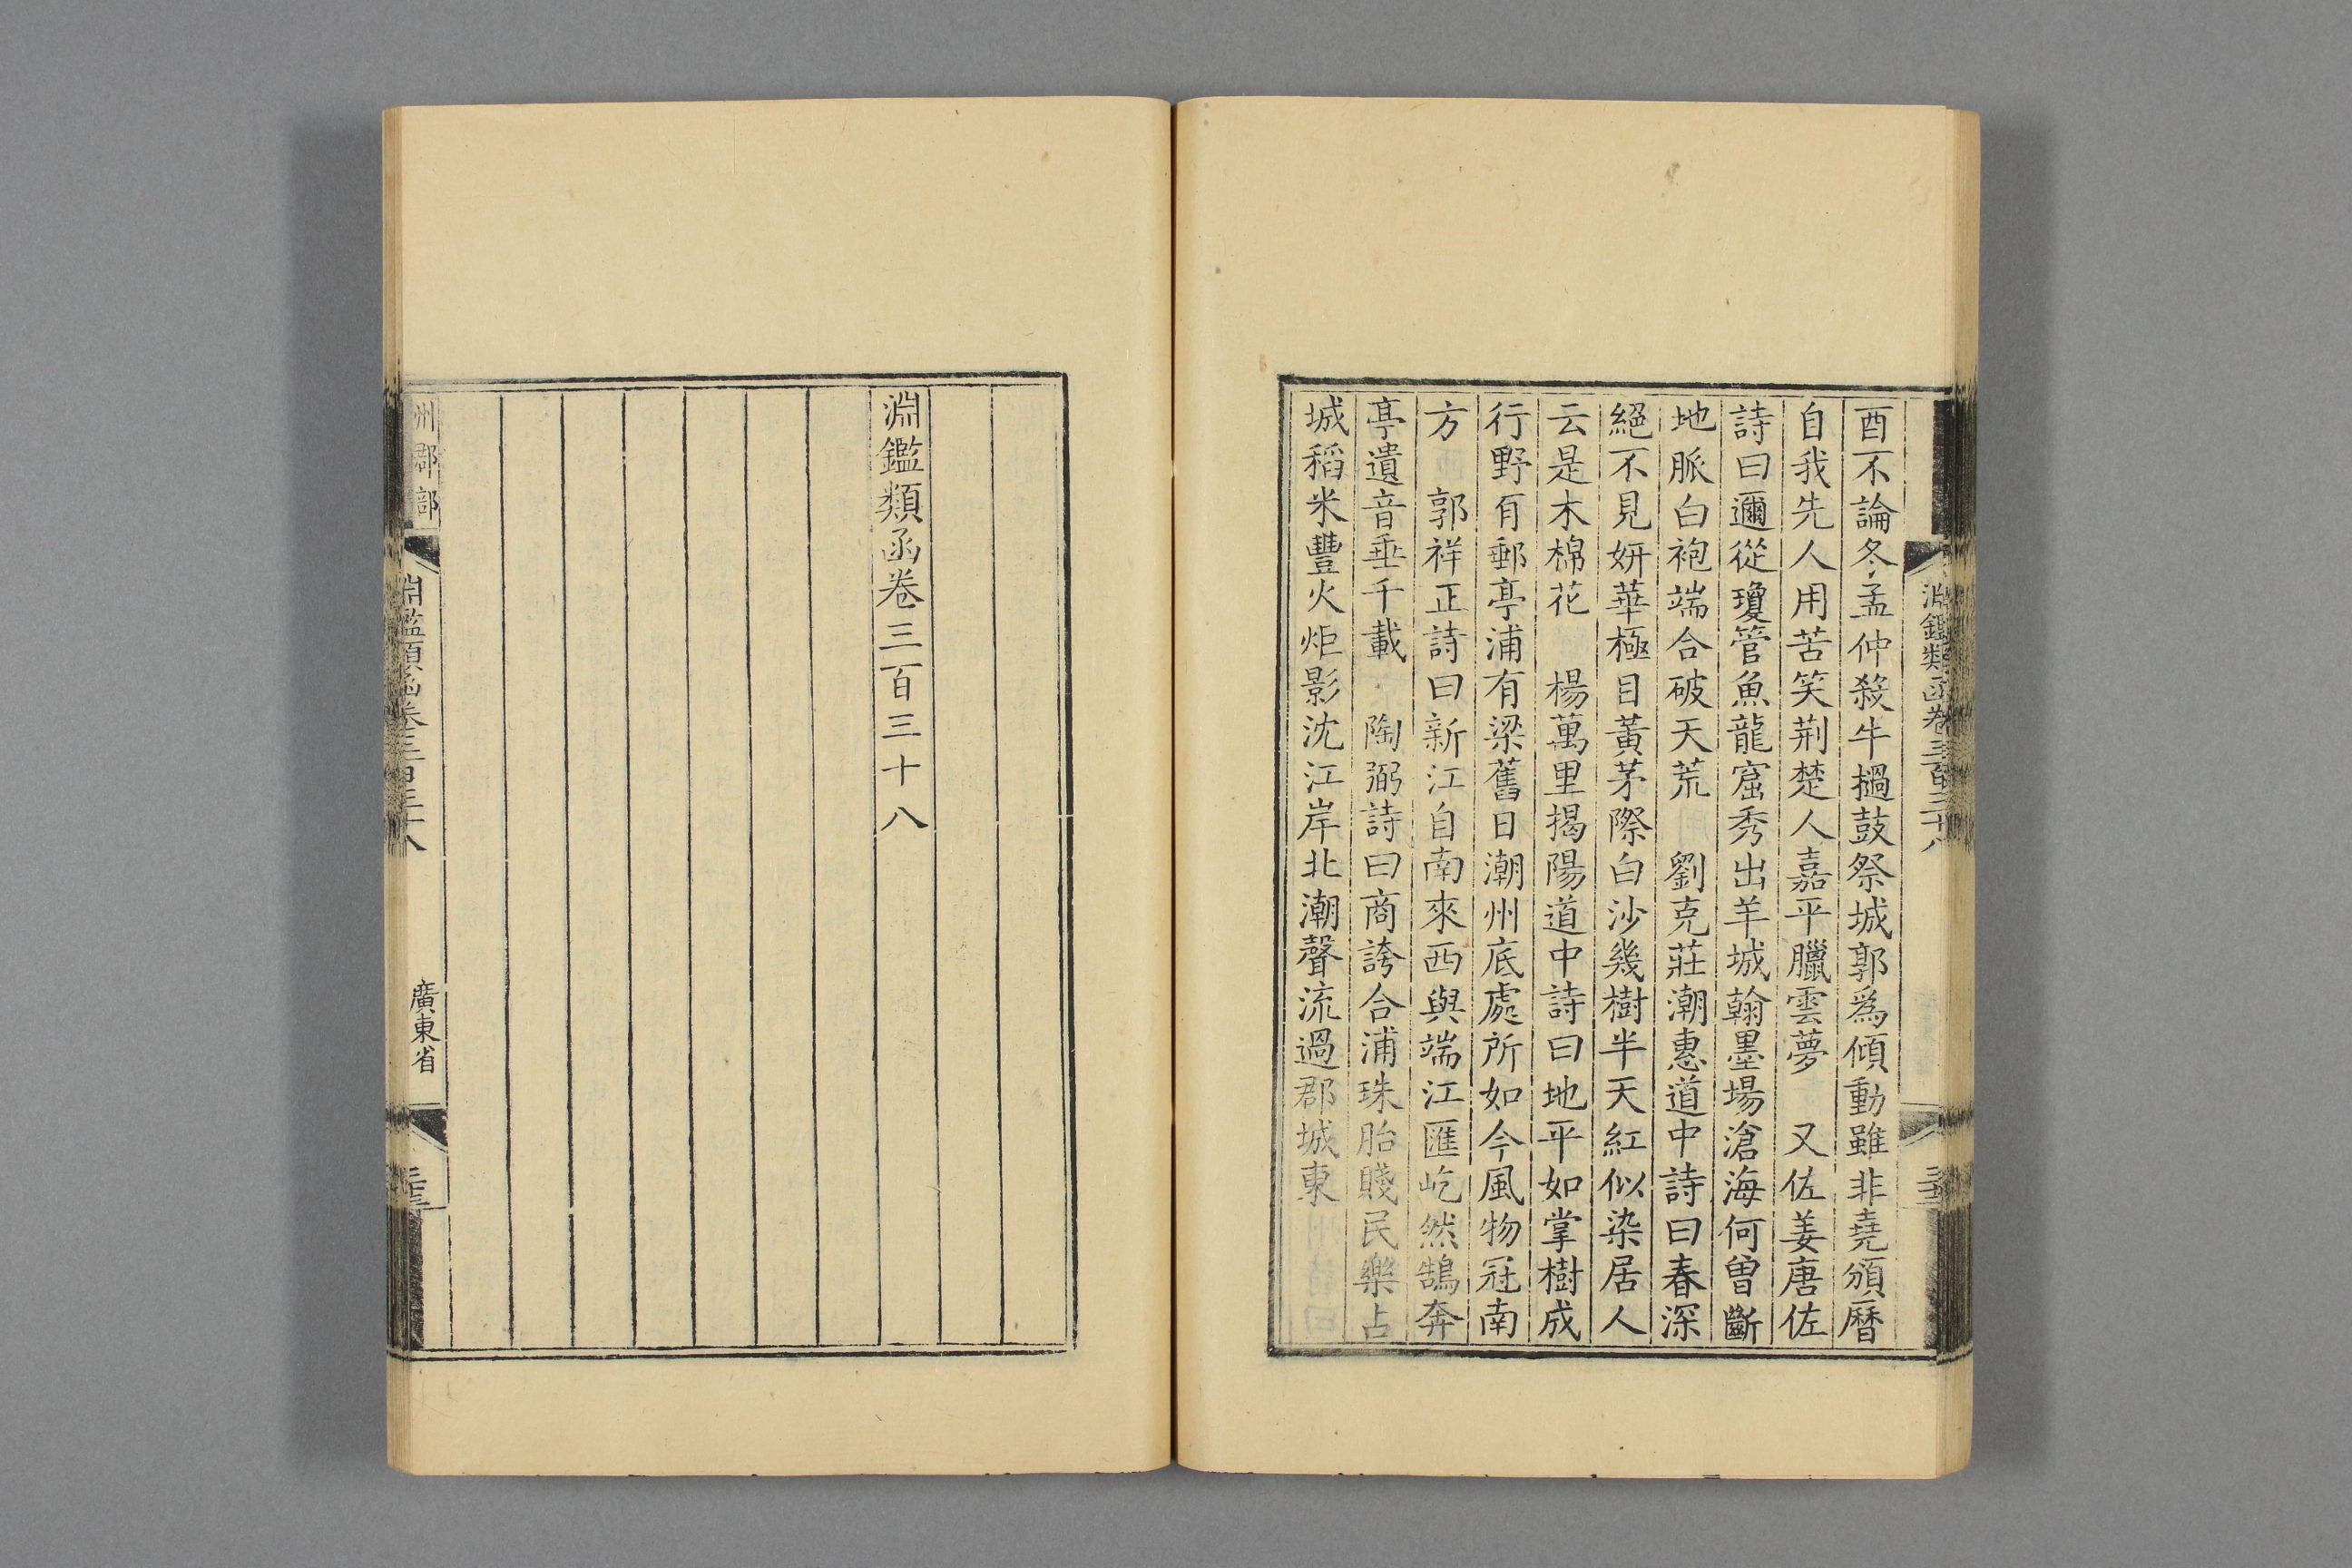 酉不論冬孟仲殺牛撾鼓祭城郭爲傾動雖非堯頒曆
自我先人用苦笑荆楚人嘉平臘雲夢　又佐姜唐佐
詩曰邇從瓊管魚龍窟秀出羊城翰墨場滄海何曾斷
地脈白袍端合破天荒　劉克莊潮惠道中詩曰春深
絕不見妍華極目黃茅際白沙幾樹半天紅似染居人
云是木棉花　楊萬里揭陽道中詩曰地平如掌樹成
行野有郵亭浦有梁舊日潮州底處所如今風物冠南
方　郭祥正詩曰新江自南來西與端江匯屹然鵠奔
亭遺音垂千載　陶弼詩曰商誇合浦珠胎賤民樂占
城稻米豐火炬影沈江岸北潮聲流過郡城東
淵鑑類函卷三百三十八
淵鑑類函卷三百三十八
州郡部
淵鑑類函卷三百三十八
廣東省